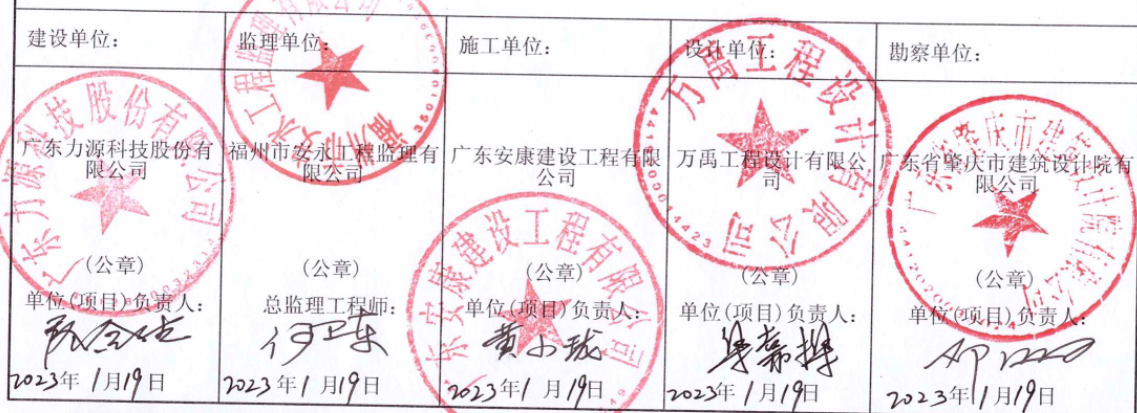 建设单位:
监理单位:
施工单位:
设计单位:
勘察单位:
广东力源科技股份有
限公司
福州市安永工程监理有
限公司
广东安康建设工程有限
公司
万禹工程设计有限公
司
广东省肇庆市建筑设计院有
限公司
(公章)
(公章)
(公章)
(公章)
(公章)
单位(项目)负责人:
总监理工程师:
单位(项目)负责人:
单位(项目)负责人:
单位(项目)负责人:
何卫东
黄小珑
2023年1月19日
2023年1月19日
2023年1月19日
2023年1月19日
2023年1月19日
广东力源科技股份有限公司
福州市安永工程监理有限公司
广东安康建设工程有限公司
万禹工程设计有限公司